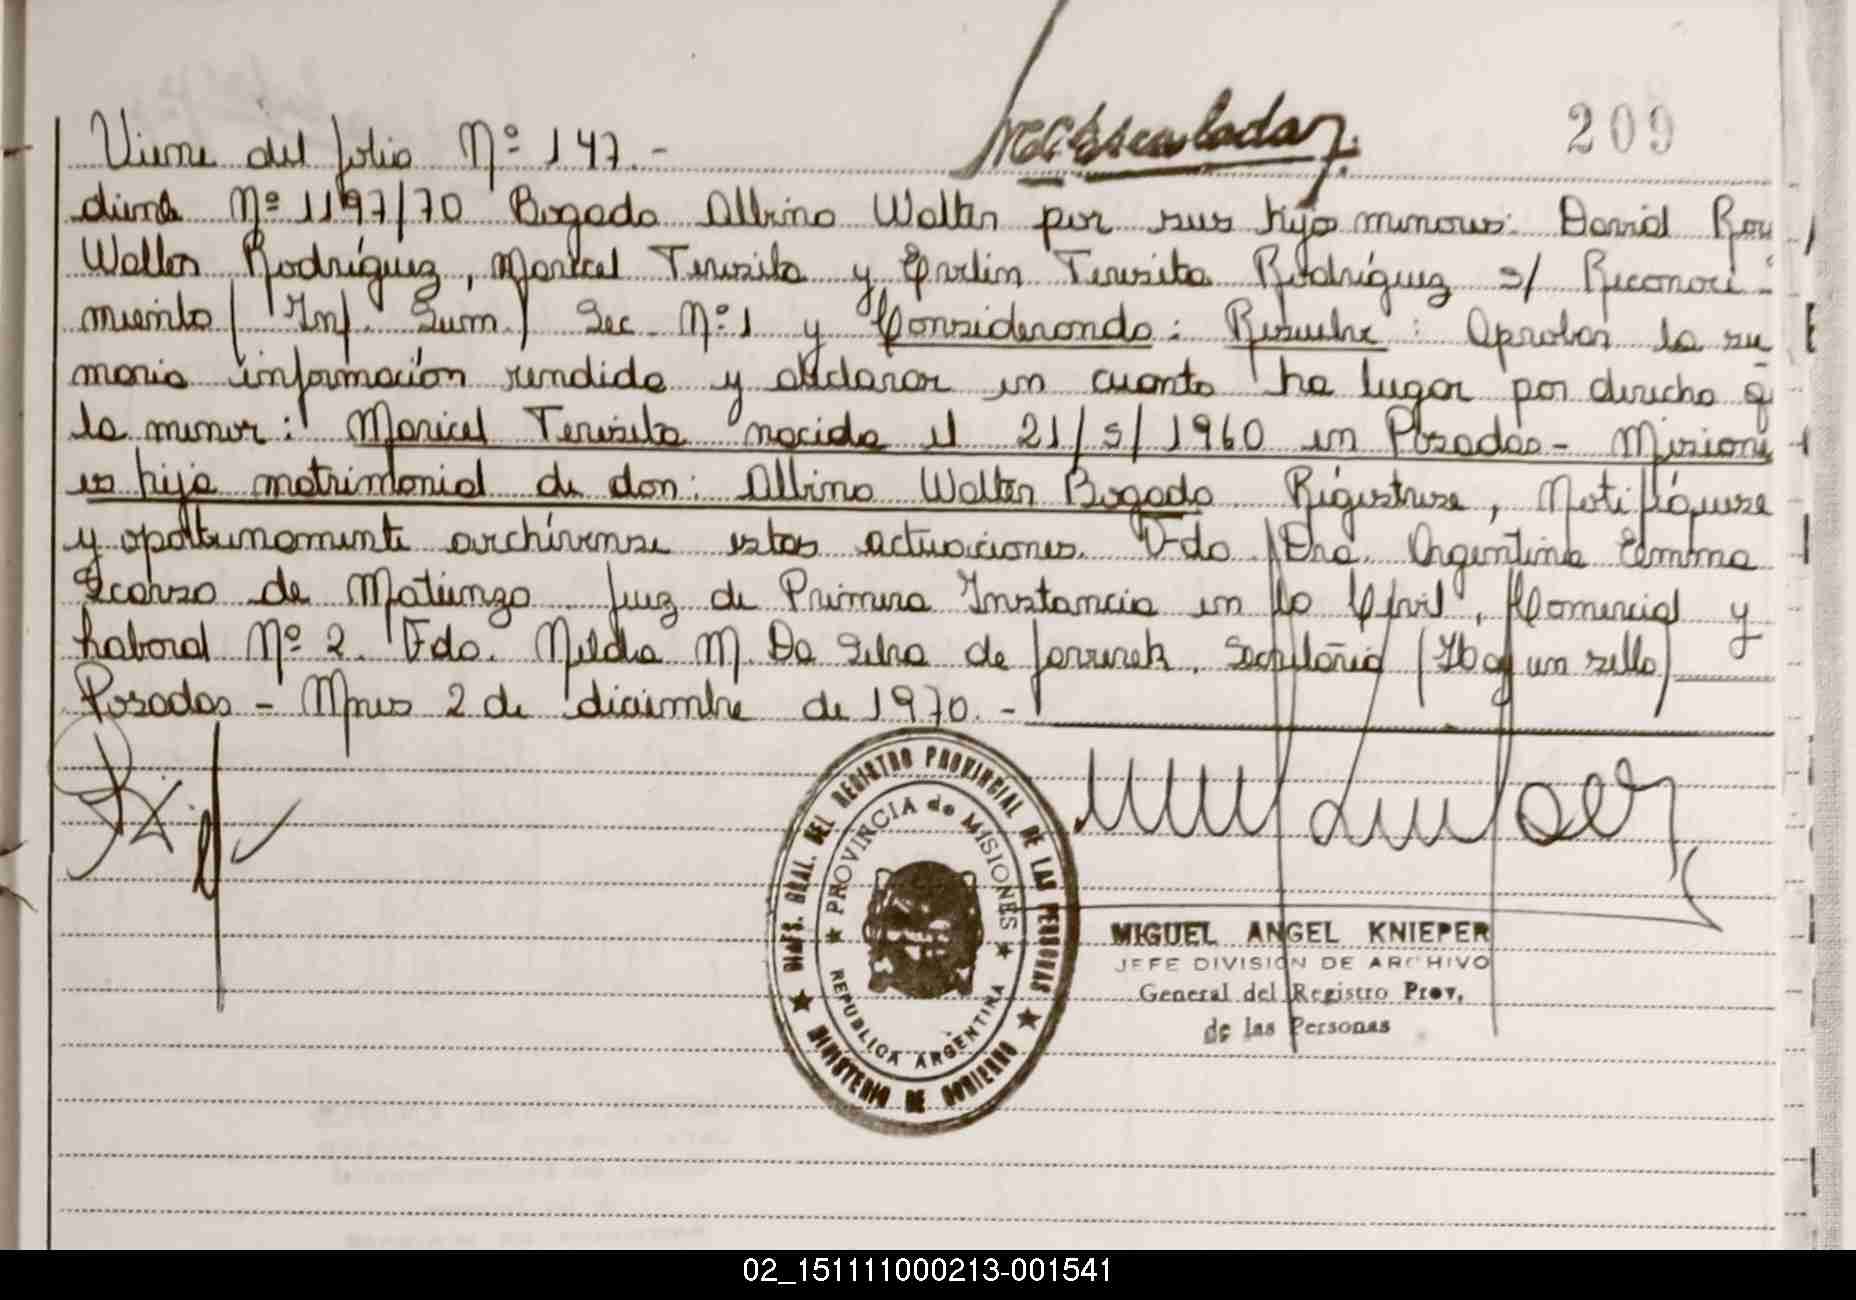 209
Viene del folio Nº 147.-
diente Nº 1197/70 Bogado Albino Walter por sus hijos menores: David Roy
Walter Rodríguez, Maricel Teresita y Evelin Teresita Rodríguez s/ Reconoci-
miento (Inf. Sum.) Sec. Nº 1 y Considerando: Resuelve: Aprobar la su
maria información rendida y declarar en cuanto ha lugar por derecho q
la menor: Maricel Teresita nacida el 21/5/1960 en Posadas - Misiones
es hija matrimonial de don: Albino Walter Bogado. Regístrese, Notifíquese
y oportunamente archívense estas actuaciones. Fdo. Dra. Argentina Emma
Scarso de Matiunzo Juez de Primera Instancia en lo Civil, Comercial y
Laboral Nº 2. Fdo. Nelda M. Da Silva de Secretaria (Hay un sello)
Posadas - Mnes 2 de diciembre de 1970.-
DIREC. GRAL. DEL REGISTRO PROVINCIAL DE LAS PERSONAS
PROVINCIA de MISIONES
REPUBLICA ARGENTINA
MINISTERIO DE GOBIERNO
MIGUEL ANGEL KNIEPER
JEFE DIVISION DE ARCHIVO
General del Registro Prov,
de las Personas
02_151111000213-001541